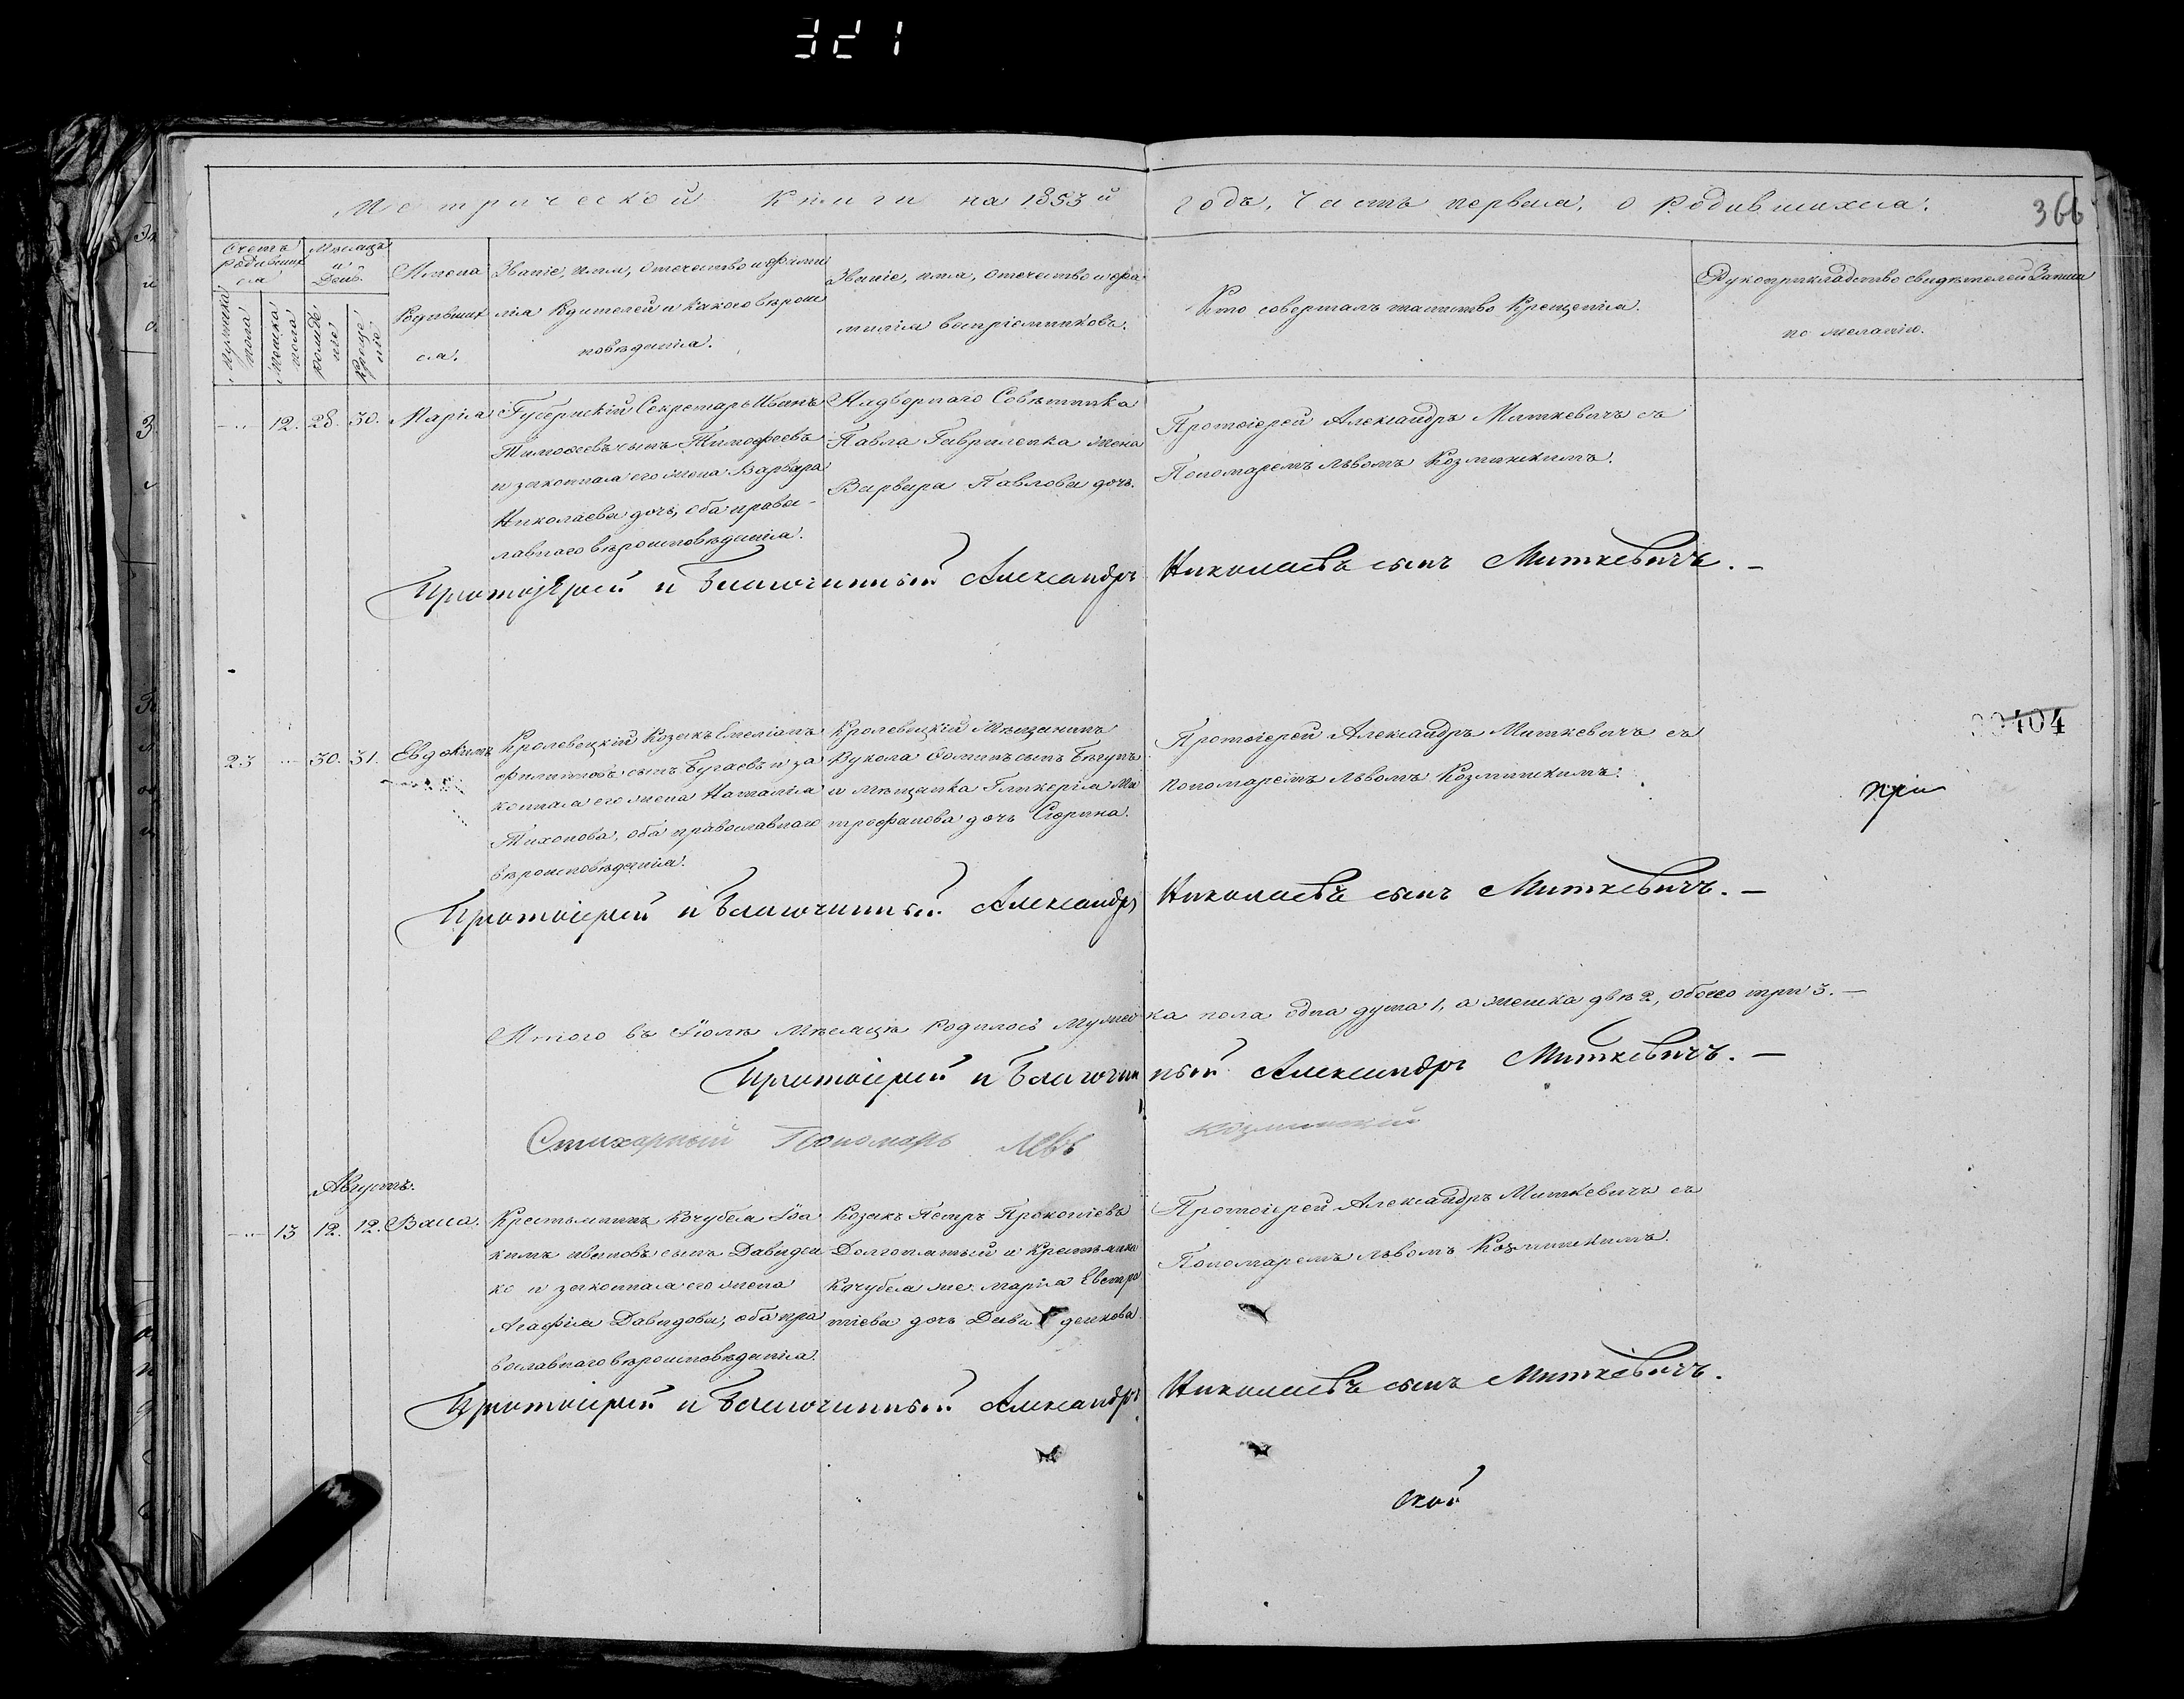 321
Метрической Книги на 1853й годъ, Часть первая, о Родившихся.
366
Счетъ Родившихся
Мѣсяцъ и День.
Мужеска пола
Женска пола
Рожденіе
Крещеніе
Имена
Родивших
ся.
Званіе, имя, отечество и фами
лія Родителей и какого вѣроис
повѣданія.
Званіе, имя, отечество и фа
милія воспріемниковъ.
Кто совершалъ таинство Крещенія.
Рукоприкладство свидѣтелей Записи
по желанію.
12. 28. 30. Марія
Губернскій Секретарь Иванъ
Тимофеевъ сынъ Тимофеевъ
и законная его жена Варвара
Николаева дочь, оба правос
лавнаго вѣроисповѣданія.
Надворнаго Совѣтника
Павла Гавриленка жена
Варвара Павлова дочь.
Протоіерей Александръ Миткевичъ съ
Пономаремъ Львомъ Козминскимъ.
Протоіерей и Благочинный Александръ Николаевъ сынъ Миткевичъ.
23 30. 31. Евдокимъ
Кролевецкій Козакъ Емеліанъ
Филиповъ сынъ Бугаевъ и за
конная его жена Наталія
Тихонова, оба православнаго
вѣроисповѣданія.
Кролевецкій Мѣщанинъ
Вукола Фоминъ сынъ Бѣгунъ
и мѣщанка Гликерія Ми
трофанова дочь Сюрина.
Протоіерей Александръ Миткевичъ съ
пономаремъ Львомъ Козминскимъ.
00404
при
Протоіерей и Благочинный Александръ Николаевъ сынъ Миткевичъ.
Итого въ Іюлѣ Мѣсяцѣ Родилось мужеска пола одна душа 1, а женска двѣ 2, обоего три 3.
Протоіерей и Благочинный Александръ Миткевичъ.
Стихарный Пономарь Левъ Козминскій
Августъ.
13 12. 12. Васса.
Крестьянинъ Кочубея Іоа
кимъ ивановъ сынъ Давиден
ко и законная его жена
Агафія Давидова, оба пра
вославнаго вѣроисповѣданія.
Козакъ Петръ Прокопіевъ
Долгопятый и Крестьянка
Кочубея же Марія Евстра
тіева дочь Давиденкова
Протоіерей Александръ Миткевичъ съ
Пономаремъ Львомъ Козминскимъ.
Протоіерей и Благочинный Александръ Николаевъ сынъ Миткевичъ.
ской